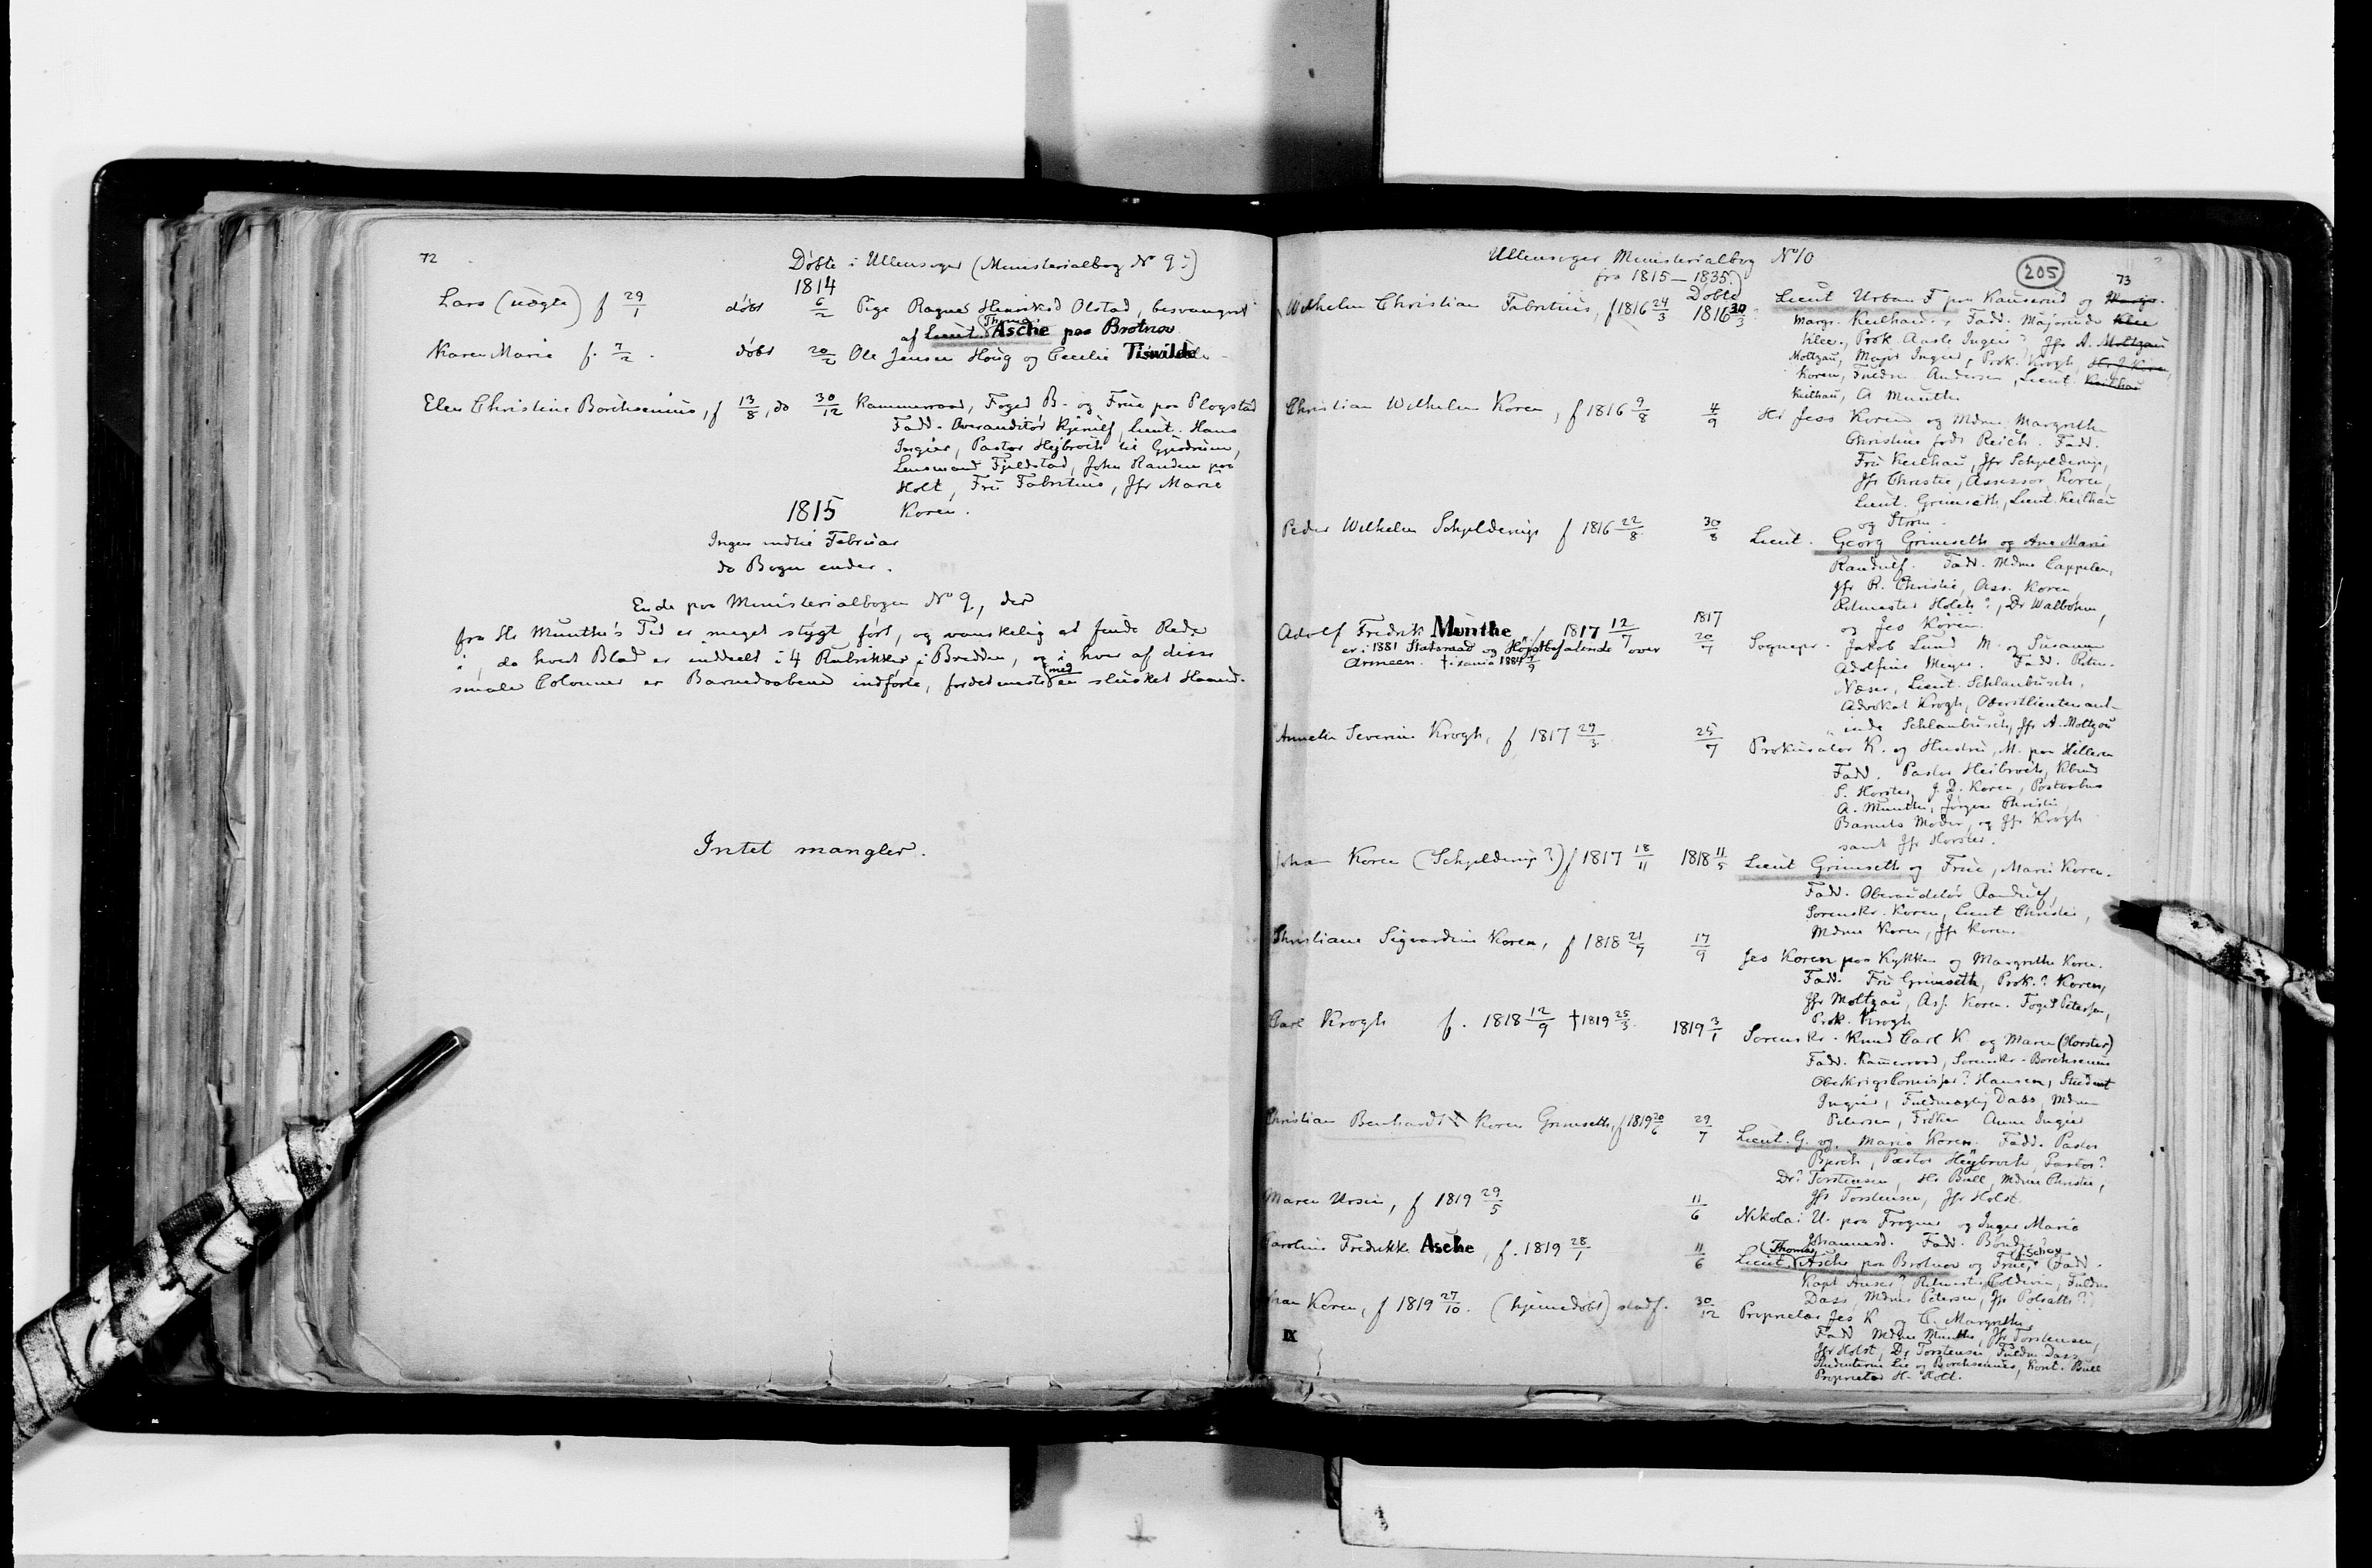 72
Døbte i Ullensoger (Ministerialbog № 9.)
1814
Lars (uægte) f 29/1 døbt 6/2 Pige Ragne Henriksd Olstad, besvangret
af Lieut. (Thomas) Asche paa Brotnov
Karen Marie f. 7/2 døbt 20/2 Ole Jensen Houg og Cecilie Tiswilde
Elen Christine Borchsenius, f 13/8, do 30/12 Kammerraad, Foged B. og Frue paa Plogstad
Fadd. Overauditør Lieut. Hans
Ingier, Pastor Hejbroch til Gjerdrum,
Lensmand Fjeldstad, John Randen paa
Holt, Fru Fabritius, Jfr Marie
Koren.
1815
Ingen indtil Februar
da Bogen ender.
Ende paa Ministerialbogen № 9, der
fra Hr Munthe's Tid er meget stygt ført, og vanskelig at finde Rede
i, da hvert Blad er inddeelt i 4 Rubrikker i Bredden, og i hver af disse
smale Colonner er Barnedaabene indførte, fordetmeste med en slusket Haand.
Intet mangler.
Ullensoger Ministerialbog № 10
fra 1815–1835.)
205
73
Døbte
Wilhelm Christian Fabritius, f 1816 24/3 1816 30/3 Lieut Urban F paa Kauserud og
Margr. Keilhau, Fadd. Majorinde
Klee, Prok. Ingier, Jfr A. Moltzau
Moltzau, Major Ingier, Prok. Krogh,
Koren, Fuldm. Andersen, Lieut. Keilhau
Keilhau, A Munthe
Christian Wilhelm Koren, f 1816 9/8 4/9 Hr Jess Koren og Mdme Margrethe
Christine født Reich. Fadd.
Fru Keilhau, Jfr Schjelderup,
Jfr Christie, Assessor Koren,
Lieut. Grimseth, Lieut. Keilhau
og Strøm.
Peder Wilhelm Schjelderup f 1816 22/8 30/8 Lieut. Georg Grimseth og Ane Marie
Randulf. Fadd. Mdme Cappelen,
Jfr R. Christie, Ass. Koren,
Ritmester Holck?, Dr Walbohm,
og Jes Koren.
Adolf Fredrik Munthe f 1817 12/7 1817 20/7 Sognepr. Jakob Lund M. og Susanne
er i 1881 Statsraad og Højstbefalende over
Armeen. † i xania 1884 7/9
Adolfine Meyer. Fadd. Ritm.
Næser, Lieut. Schlanbusch,
Advokat Krogh, Oberstlieutenant-
inde Schlanbusch, Jfr A. Moltzau
Annette Severine Krogh, f 1817 29/3 25/7 Prokurator K. og Hustru, M. paa Hilleren
Fadd. Pastor Heibroch, Kbmd
S. Horster, J. D. Koren,
A. Munthe, Jørgen Christie,
Barnets Moder, og Jfr Krogh
samt Jfr Horster.
Johan Koren (Schjelderup?) f 1817 18/11 1818 11/5 Lieut Grimseth og Frue, Marie Koren.
Fadd. Oberauditør Randulf,
Sorenskr. Koren, Lieut Christie,
Mdme Koren, Jfr Koren.
Christiane Sigvardine Koren, f 1818 21/7 17/9 Jes Koren paa Kykken og Margrethe Koren.
Fadd. Fru Grimseth, Prok.? Koren,
Jfr Moltzau, Ass. Koren. Foged Petersen,
Prok. Krogh
Carl Krogh f. 1818 12/9 † 1819 25/3 1819 3/1 Sorenskr. Knud Carl K og Maren (Horster)
Fadd. Kammerraad, Sorenskr. Borchsenius
Oberkrigscomissær? Hansen, Student
Ingier, Fuldmægtig Dass, Mdme
Petersen, Frøken Anne Ingier
Christian Benhardt Koren Grimseth, f 1819 20/6 29/7 Lieut. G. og Marie Koren. Fadd. Pastor
Bjerch, Pastor Hejbroch, Pastor?
Dr? Torstensen, Hr Bull, Mdme Christie,
Jfr Torstensen, Jfr Holst.
Maren Ursin, f 1819 29/5 11/6 Nikolai U. paa Frogner og Inger Marie
Johannesd. Fadd. Bønder
Caroline Fredrikke Asche, f. 1819 28/1 11/6 Lieut. (Thomas) Asche paa Brotnov og Frue, Fadd.
Kapt Anker? Ritmester Coldevin, Fuldm
Dass, Mdme Petersen, Jfr
Johan Koren, f 1819 27/10 (hjemmedøbt) stadf. 30/12 Proprietær Jes K og C. Margrethe
Fadd Mdme Munthe, Jfr Torstensen,
Jfr Holst, Dr Torstensen Fuldm. Dass,
Studenterne Lie og Borchsenius, Kont. Bull
Proprietær H. Holt.
IX